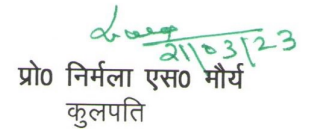 21/03/23
प्रो0 निर्मला एस0 मौर्य
कुलपति